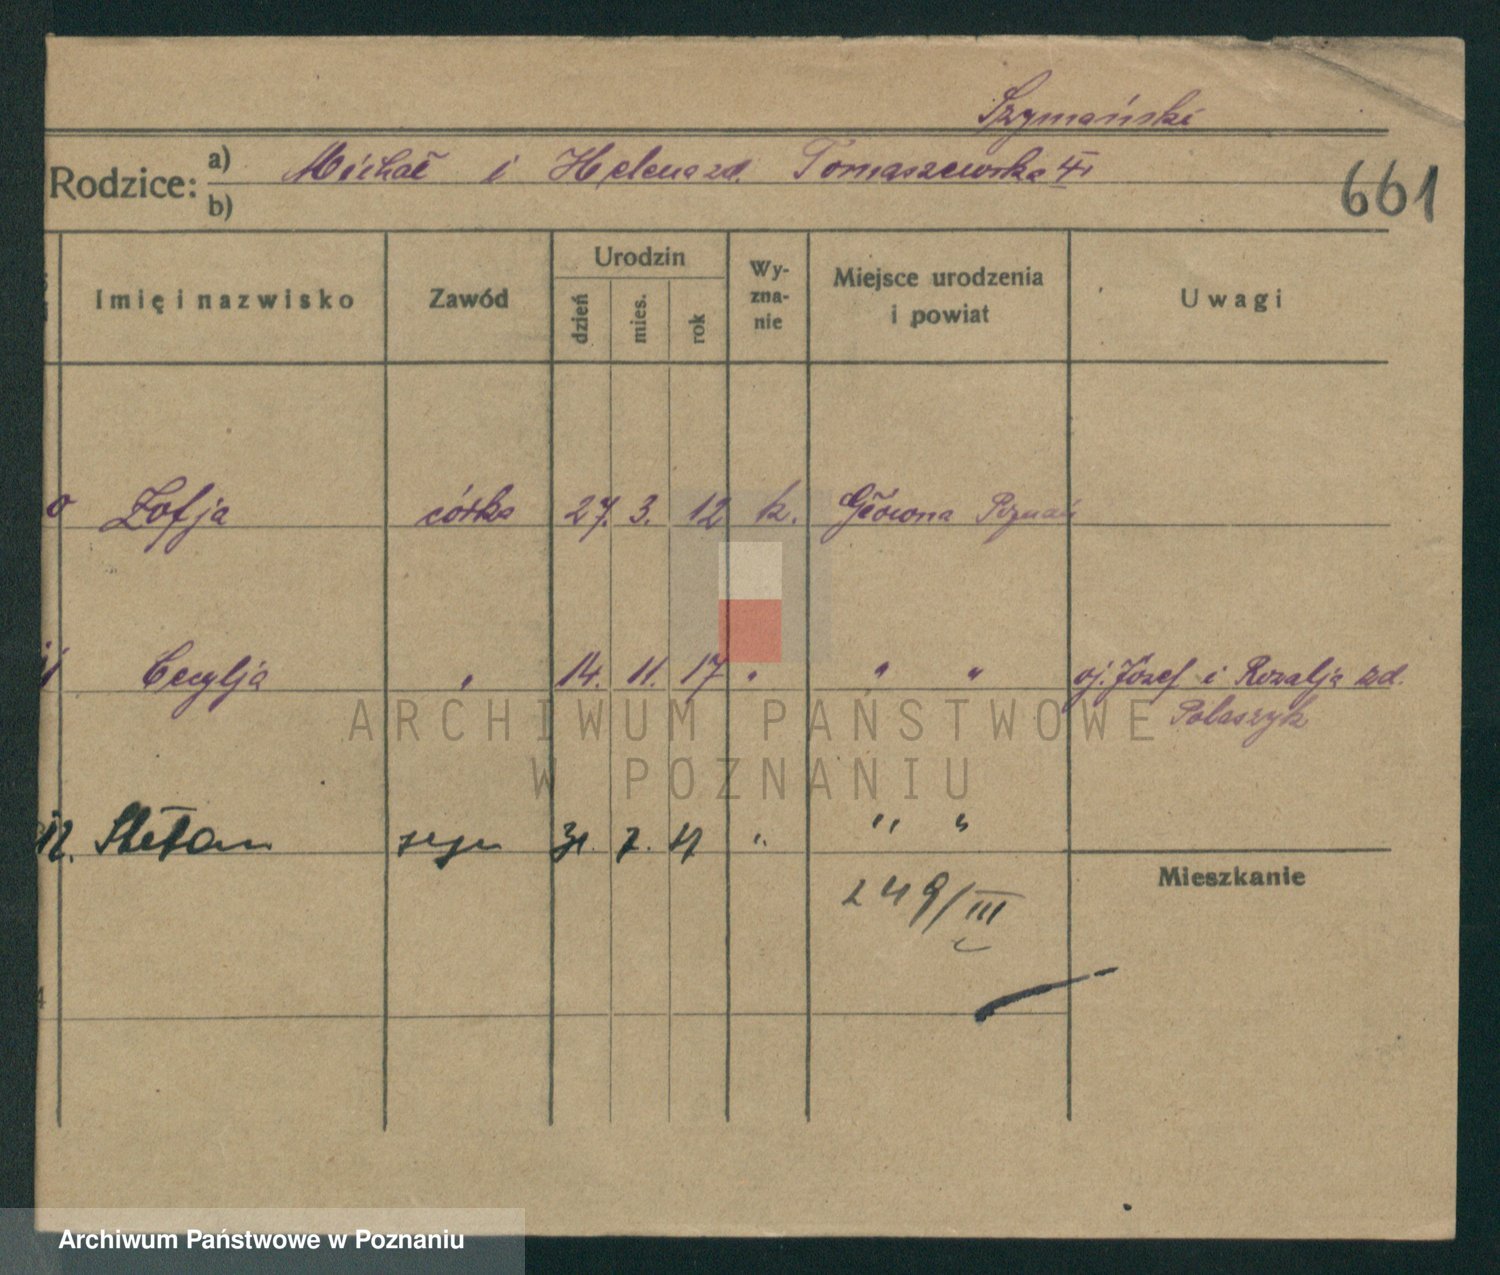 Szymański
Rodzice: a) Michał i Helena zd. Tomaszewska
b)
661
Imię i nazwisko Zawód Urodzin dzień mies. rok Wy-zna-nie Miejsce urodzenia i powiat Uwagi
Zofja córka 27. 3. 12 k. Główna Poznań
11 Cecylja " 14. 11. 17 " " " oj. Józef i Rozalja zd.
Polaszyk
ARCHIWUM PAŃSTWOWE
W POZNANIU
12. Stefan 7. " " "
Mieszkanie
249/III
Archiwum Państwowe w Poznaniu